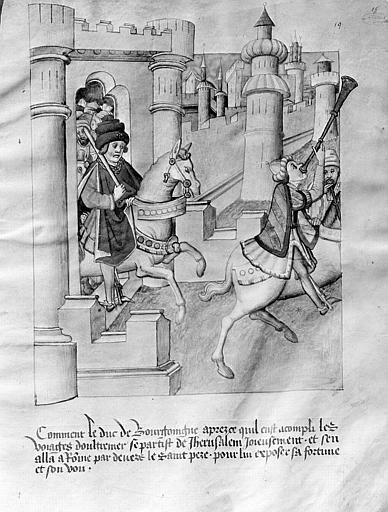 19
Comment le duc de Bourgoingne aprez ce quil eust acompli les
voiages doultremer se partist de Jherusalem Joieusement · et sen
alla a Rome par devers le saint pere · pour lui exposer sa fortune
et son vou ·